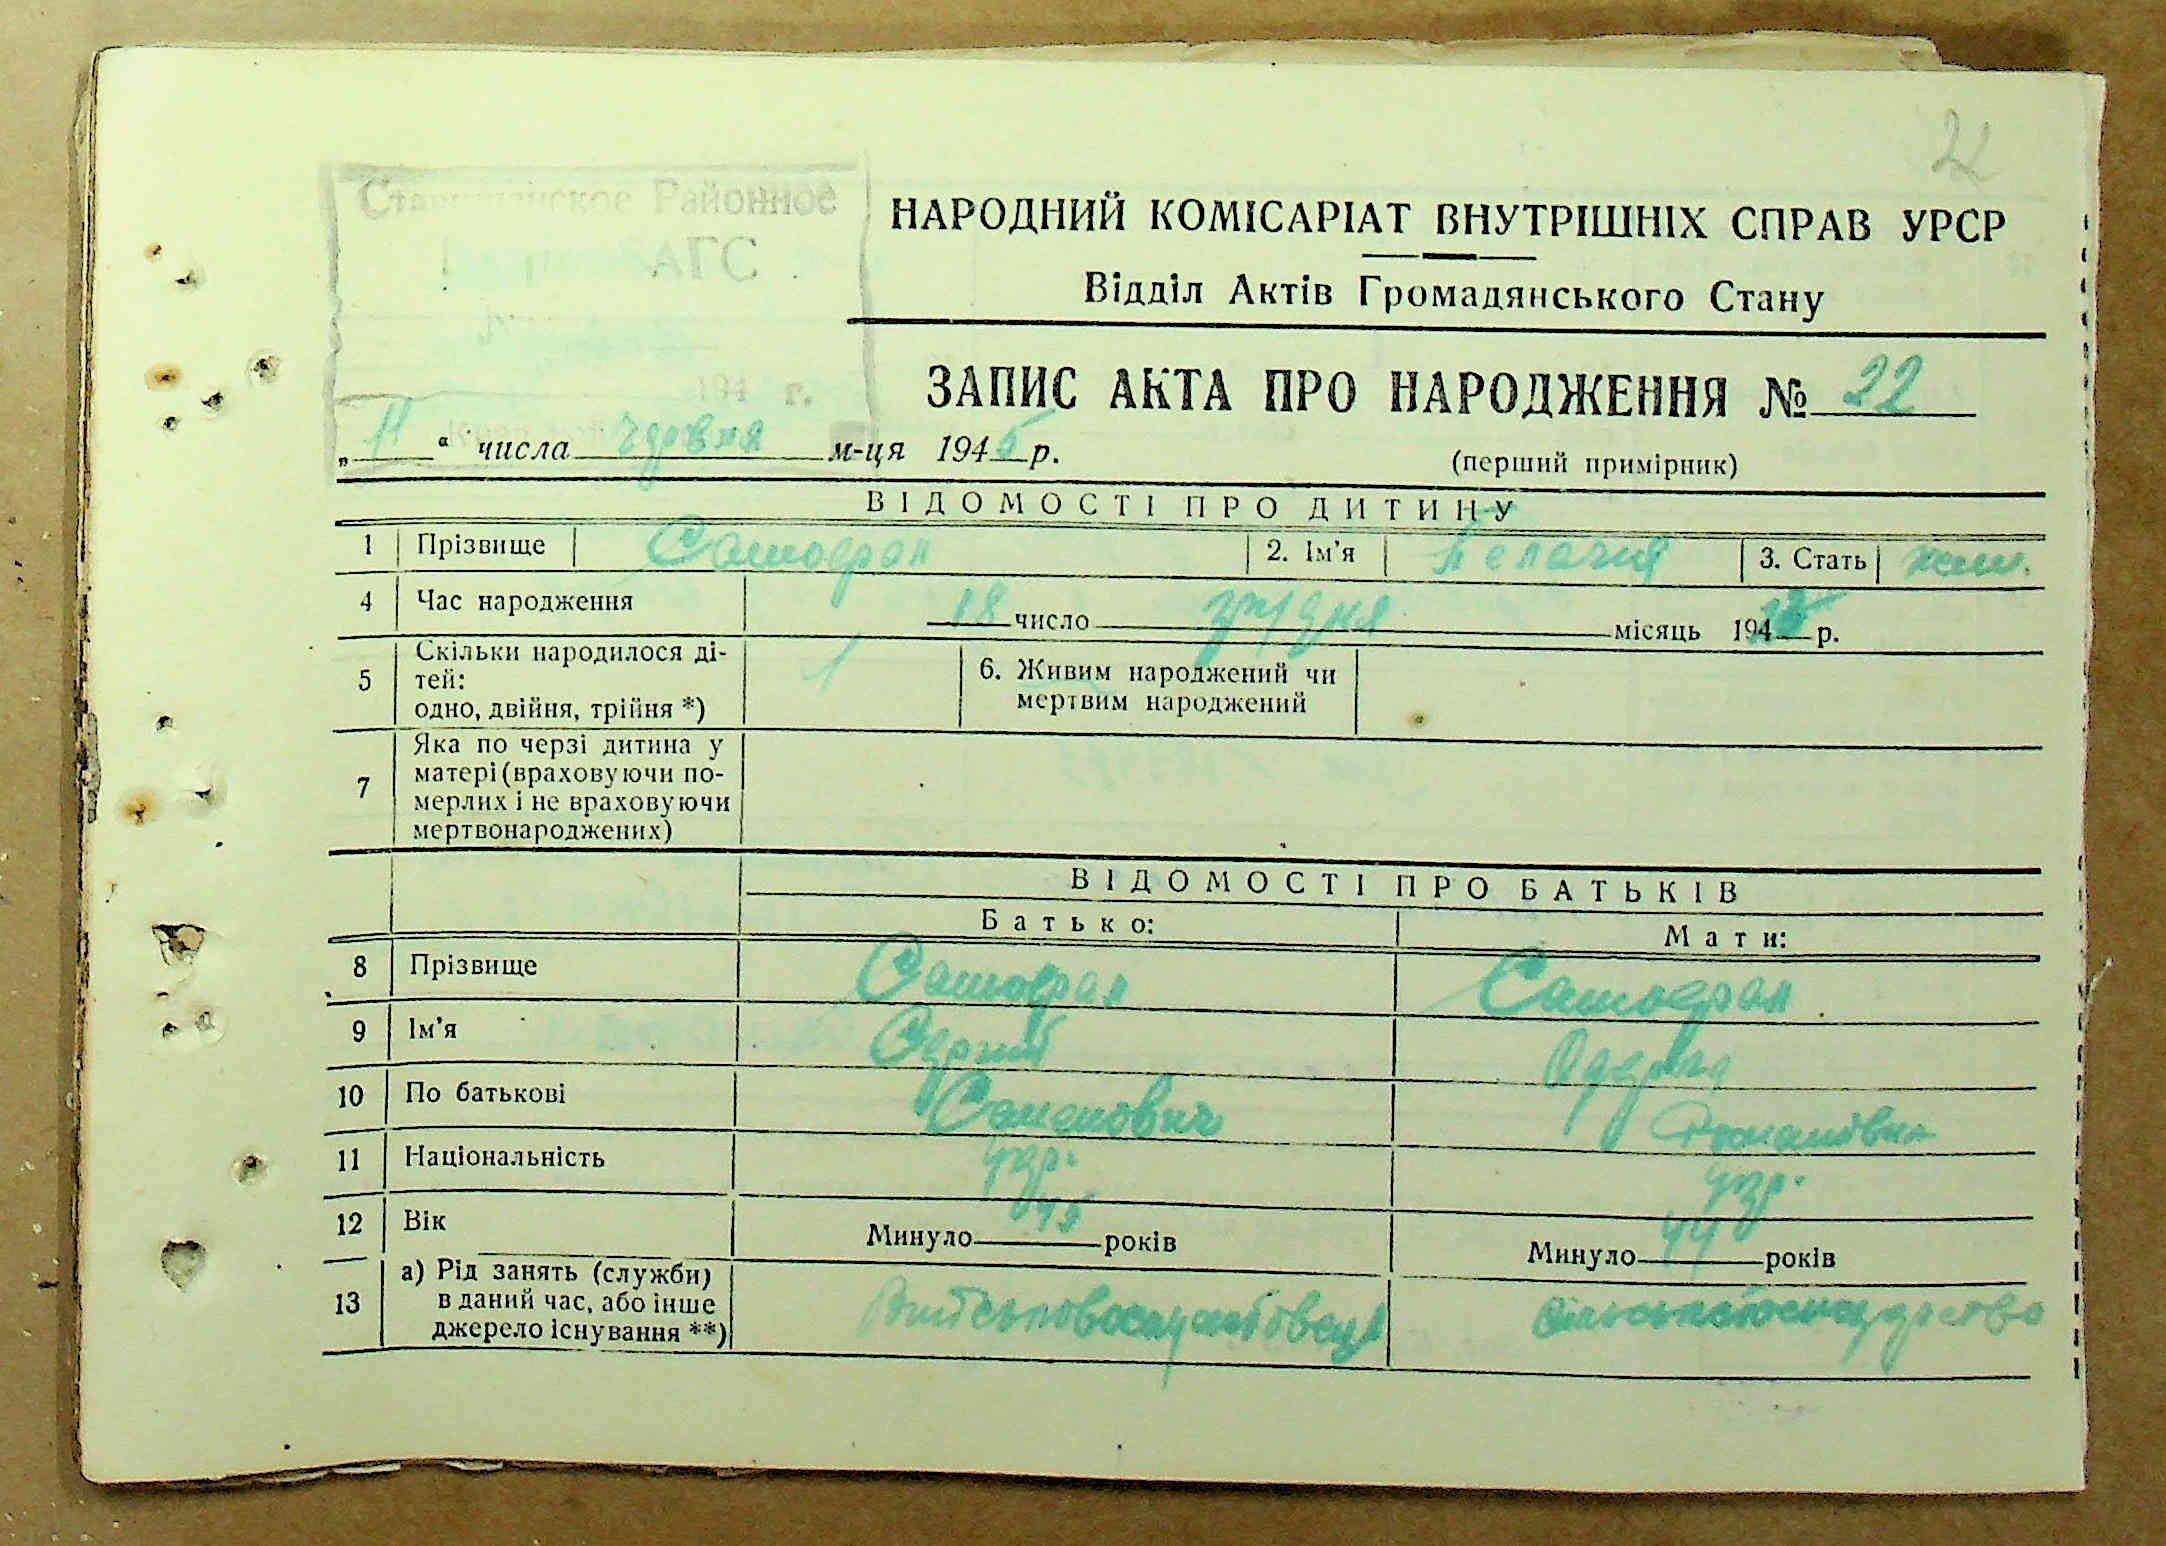 22
Районное
АГС
194 г.
НАРОДНИЙ КОМІСАРІАТ ВНУТРІШНІХ СПРАВ УРСР
Відділ Актів Громадянського Стану
ЗАПИС АКТА ПРО НАРОДЖЕННЯ № 22
„11“ числа червня м-ця 1945 р.
(перший примірник)
ВІДОМОСТІ ПРО ДИТИНУ
1 Прізвище 2. Ім'я Пелагия 3. Стать жін.
4 Час народження 18 число грудня місяць 194 р.
5 Скільки народилося ді-
тей:
одно, двійня, трійня *) 1
6. Живим народжений чи
мертвим народжений
7 Яка по черзі дитина у
матері (враховуючи по-
мерлих і не враховуючи
мертвонароджених)
ВІДОМОСТІ ПРО БАТЬКІВ
Батько: Мати:
8 Прізвище
9 Ім'я Сергий
10 По батькові Семенович Романівна
11 Національність укр. укр.
12 Вік Минуло 45 років Минуло 44 років
13 а) Рід занять (служби)
в даний час, або інше
джерело існування **)
Військовослужбовець